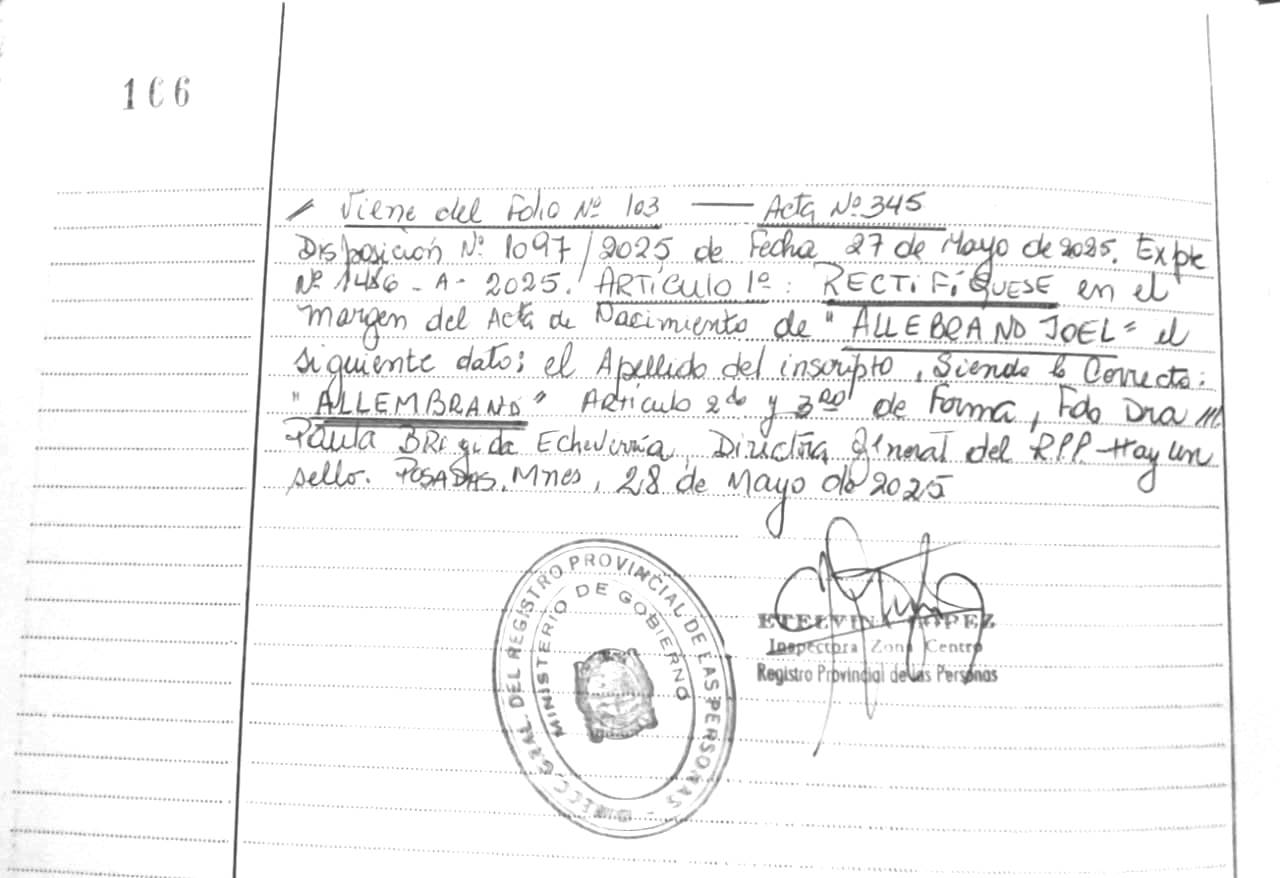 166
Viene del Folio Nº 103 — Acta Nº 345
Disposición Nº 1097/2025 de Fecha 27 de Mayo de 2025. Expte
Nº 1486 - A - 2025. ARTÍCULO 1º: RECTIFÍQUESE en el
Margen del Acta de Nacimiento de "ALLEBRAND JOEL" el
siguiente dato: el Apellido del inscripto, Siendo lo Correcto:
"ALLEMBRAND" Artículo 2do y 3ro de Forma, Fdo Dra M.
Paula BRigida Echeverría, Directora General del R.P.P. - Hay un
sello. POSADAS, Mnes, 28 de Mayo de 2025
DIRECC. GRAL. DEL REGISTRO PROVINCIAL DE LAS PERSONAS -
MINISTERIO DE GOBIERNO
ETELVINA LOPEZ
Inspectora Zona Centro
Registro Provincial de las Personas